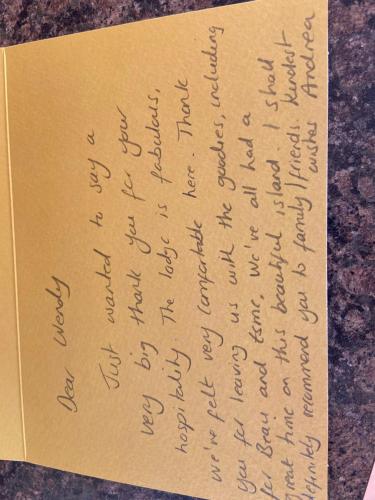 Dear Wendy
Just wanted to say a
very big thank you for your
hospitality. The lodge is fabulous,
we've felt very comfortable here. Thank
you for leaving us with the goodies, including
for Brau and Esme, we've all had a
reat time on this beautiful island. I shall
finitely recommend you to family/friends. Kindest
wishes Andrea